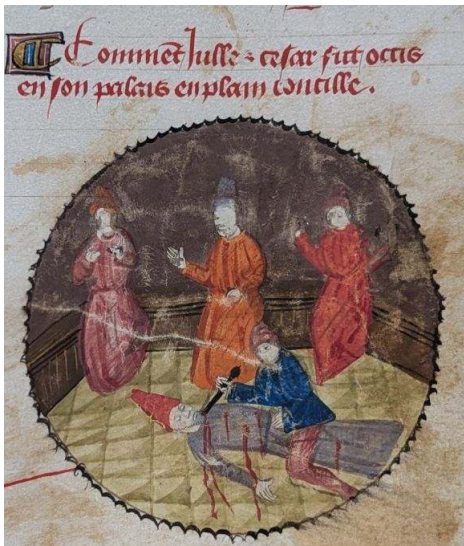 Comment Julle cesar fut occis
en son palais en plain concille.